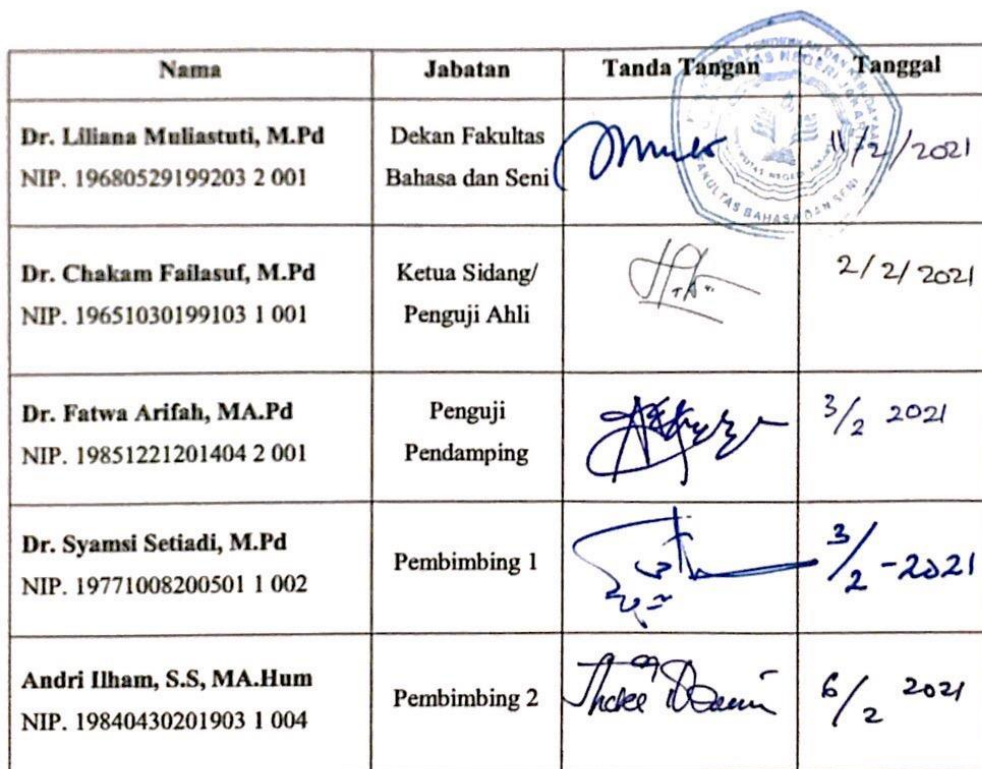 Nama Jabatan Tanda Tangan Tanggal
Dr. Liliana Muliastuti, M.Pd
NIP. 19680529199203 2 001
Dekan Fakultas
Bahasa dan Seni
11/2/2021
FAKULTAS BAHASA DAN SENI
Dr. Chakam Failasuf, M.Pd
NIP. 19651030199103 1 001
Ketua Sidang/
Penguji Ahli
2/2/2021
Dr. Fatwa Arifah, MA.Pd
NIP. 19851221201404 2 001
Penguji
Pendamping
3/2 2021
Dr. Syamsi Setiadi, M.Pd
NIP. 19771008200501 1 002
Pembimbing 1
3/2 - 2021
Andri Ilham, S.S, MA.Hum
NIP. 19840430201903 1 004
Pembimbing 2
6/2 2021